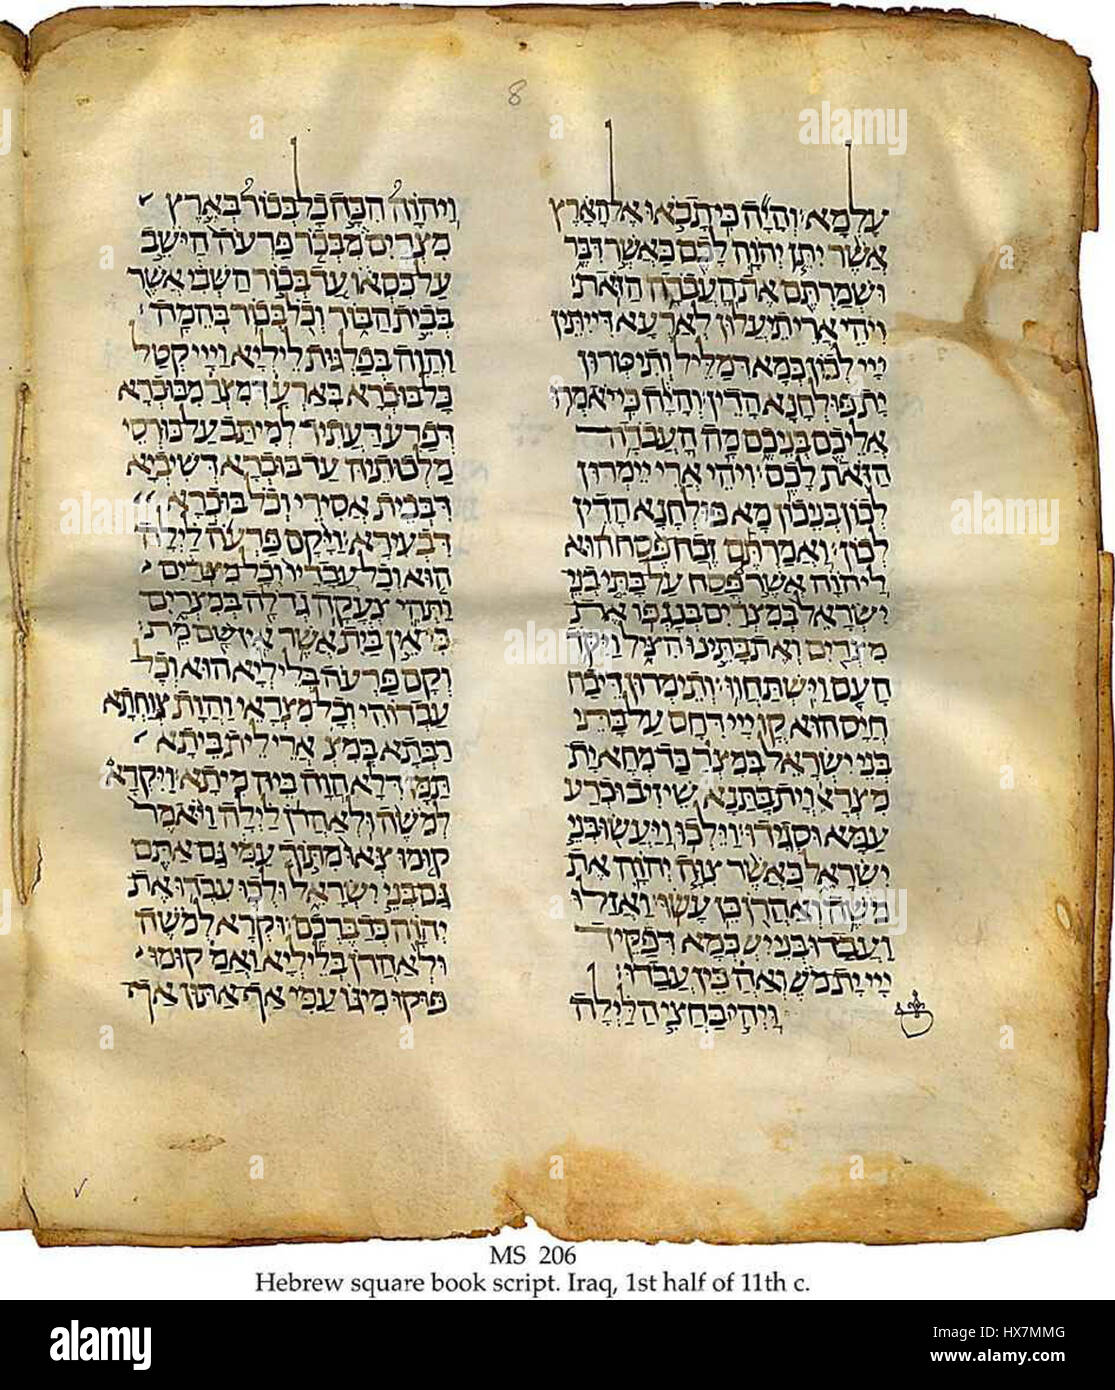 8
עלמא והיה כי תבאו אל הארץ
אשר יתן יהוה לכם כאשר דבר
ושמרתם את העבדה הזאת
ויהי ארי תיעלון לארעא דייתין
ייי לכון כמא דמליל ותיטרון
ית פולחנא הדין והיה כי יאמרו
אליכם בניכם מה העבדה
הזאת לכם ויהי ארי יימרון
לכון בניכון מא פולחנא הדין
לכון ואמרתם זבח פסח הוא
ליהוה אשר פסח על בתי בני
ישראל במצרים בנגפו את
מצרים ואת בתינו הציל ויקד
העם וישתחוו ותימרון דיבח
חייס הוא קדם ייי דחס על בתי
בני ישראל במצר כד מחא ית
מצראי וית בתנא שיזיב וכרע
עמא וסגידו וילכו ויעשו בני
ישראל כאשר צוה יהוה את
משה ואהרן כן עשו ואזלו
ועבדו בני יש כמא דפקיד
ייי ית מש ואה כין עבדו
ויהי בחצי הלילה
ויהוה הכה כל בכור בארץ
מצרים מבכר פרעה הישב
על כסאו עד בכור השבי אשר
בבית הבור וכל בכור בהמה
והוה בפלגות ליליא וייי קטל
כל בוכרא בארעא דמצר מבוכרא
דפרעה דעתיד למיתב על כורסי
מלכותיה עד בוכרא דשיביא
דבבית אסירי וכל בוכרא
דבעירא ויקם פרעה לילה
הוא וכל עבדיו וכל מצרים
ותהי צעקה גדלה במצרים
כי אין בית אשר אין שם מת
וקם פרעה בליליא הוא וכל
עבדוהי וכל מצראי והות צוחתא
רבתא במצ ארי לית ביתא
תמן דלא הוה ביה מיתא ויקרא
למשה ולאהרן לילה ויאמר
קומו צאו מתוך עמי גם אתם
גם בני ישראל ולכו עבדו את
יהוה כדברכם וקרא למשה
ולאהרן בליליא ואמ קומו
פוקו מיגו עמי אף אתון אף
MS 206
Hebrew square book script. Iraq, 1st half of 11th c.
alamy
Image ID: HX7MMG
www.alamy.com